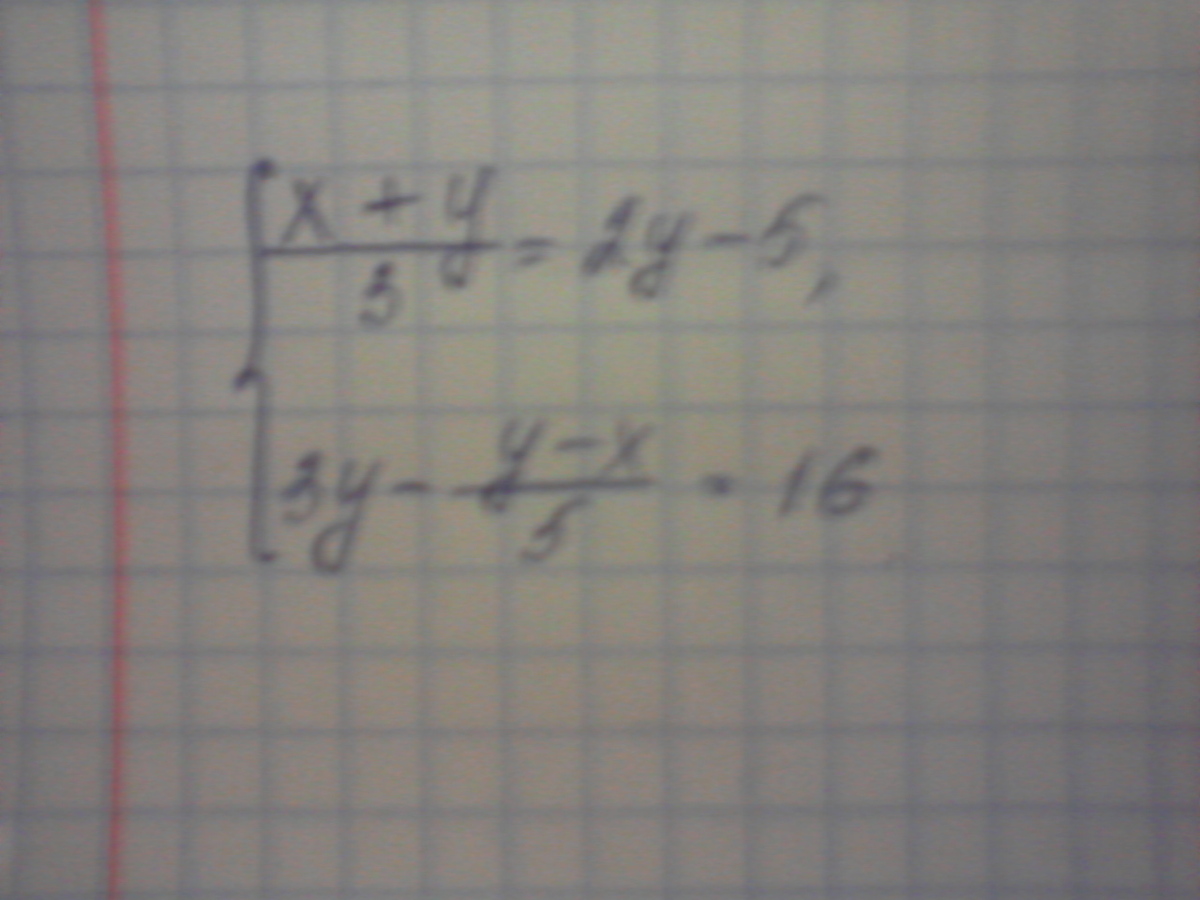 { (x + y)/3 = 2y - 5,
3y - (y - x)/5 = 16